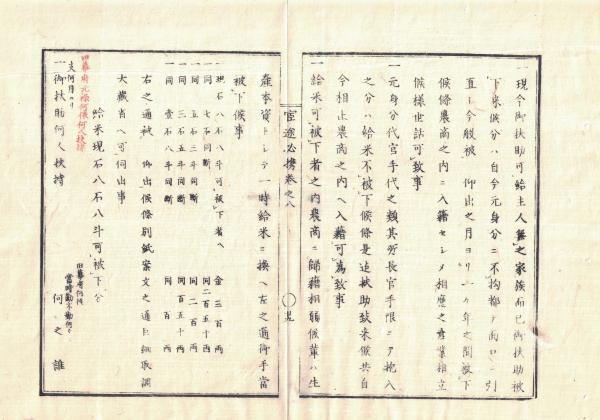 一現今御扶助可給主人無之家族而已御扶助被
下来候分ハ自今元身分ニ不拘都テ面口ニ引
直シ今般被 仰出之月ヨリ一ケ年之間被下
候條農商之内ニ入籍セシメ相應之産業相立
候様世話可致事
一元身分代官手代之類其所長官手限ニテ抱入
之分ハ給米不被下候條是迄扶助致来候共自
今相止農商之内ヘ入籍可為致事
一給米可被下者之内農商ニ歸籍相願候輩ハ生
官途必携巻之八
産奉資トシテ一時給米ニ換ヘ左之通御手當
被下候事
一現石八石八斗可被下者ヘ 金三百両
一同 七石同断 同二百五十両
一同 五石三斗同断 同二百両
一同 三石五斗同断 同百五十両
一同 壹石八斗同断 同百両
右之通被 仰出候條別紙案文之通巨細取調
大藏省ヘ可伺出事
給米現石八石八斗可被下分
旧幕府元禄何俵何人扶持
支何月ヨリ
一御扶助何人扶持
旧幕府何役
當時勤不勤何々
何之誰